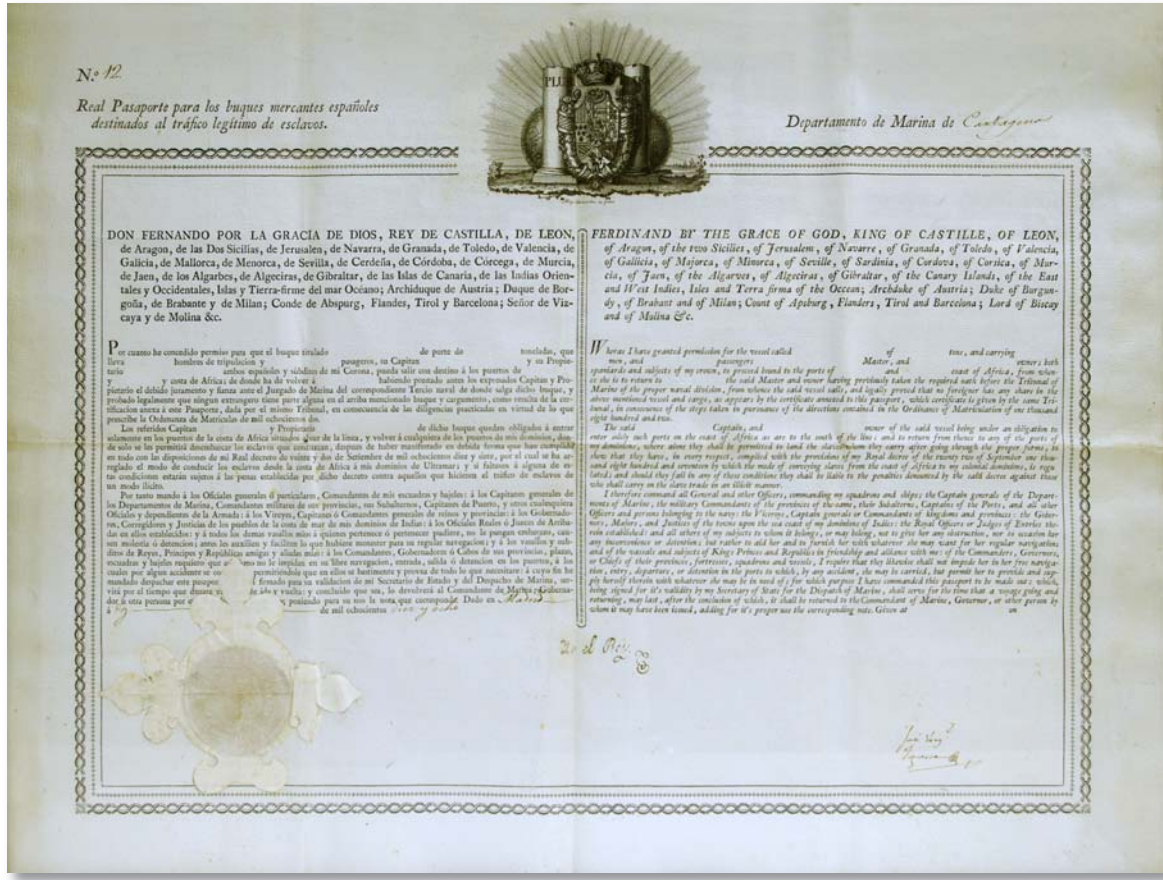 N.º 12
Real Pasaporte para los buques mercantes españoles
destinados al tráfico legítimo de esclavos.
PLU
Departamento de Marina de Cartagena
DON FERNANDO POR LA GRACIA DE DIOS, REY DE CASTILLA, DE LEON,
de Aragon, de las Dos Sicilias, de Jerusalen, de Navarra, de Granada, de Toledo, de Valencia, de
Galicia, de Mallorca, de Menorca, de Sevilla, de Cerdeña, de Córdoba, de Córcega, de Murcia,
de Jaen, de los Algarbes, de Algeciras, de Gibraltar, de las Islas de Canaria, de las Indias Orien-
tales y Occidentales, Islas y Tierra-firme del mar Océano; Archiduque de Austria; Duque de Bor-
goña, de Brabante y de Milan; Conde de Abspurg, Flandes, Tirol y Barcelona; Señor de Viz-
caya y de Molina &c.
Por cuanto he concedido permiso para que el buque titulado de porte de toneladas, que
lleva hombres de tripulacion y pasageros, su Capitan y su Propie-
tario ambos españoles y súbditos de mi Corona, pueda salir con destino á los puertos de
y y costa de Africa; de donde ha de volver á habiendo prestado antes los expresados Capitan y Pro-
pietario el debido juramento y fianza ante el Juzgado de Marina del correspondiente Tercio naval de donde salga dicho buque, y
probado legalmente que ningun extrangero tiene parte alguna en el arriba mencionado buque y cargamento, como resulta de la cer-
tificacion anexa á este Pasaporte, dada por el mismo Tribunal, en consecuencia de las diligencias practicadas en virtud de lo que
prescribe la Ordenanza de Matriculas de mil ochocientos dos.
Los referidos Capitan y Propietario de dicho buque quedan obligados á entrar
solamente en los puertos de la costa de Africa situados al sur de la linea, y volver á cualquiera de los puertos de mis dominios, don-
de solo se les permitirá desembarcar los esclavos que conduzcan, despues de haber manifestado en debida forma que han cumplido
en todo con las disposiciones de mi Real decreto de veinte y dos de Setiembre de mil ochocientos diez y siete, por el cual se ha ar-
reglado el modo de conducir los esclavos desde la costa de Africa á mis dominios de Ultramar; y si faltasen á alguna de es-
tas condiciones estarán sujetos á las penas establecidas por dicho decreto contra aquellos que hicieren el tráfico de esclavos de
un modo ilícito.
Por tanto mando á los Oficiales generales ó particulares, Comandantes de mis escuadras y bajeles: á los Capitanes generales de
los Departamentos de Marina, Comandantes militares de sus provincias, sus Subalternos, Capitanes de Puerto, y otros cualesquiera
Oficiales y dependientes de la Armada: á los Vireyes, Capitanes ó Comandantes generales de reinos y provincias: á los Gobernado-
res, Corregidores y Justicias de los pueblos de la costa de mar de mis dominios de Indias: á los Oficiales Reales ó Jueces de Arriba-
das en ellos establecidos: y á todos los demas vasallos mios á quienes pertenece ó pertenecer pudiere, no le pongan embarazo, cau-
sen molestia ó detencion; antes los auxilien y faciliten lo que hubiere menester para su regular navegacion; y á los vasallos y súb-
ditos de Reyes, Príncipes y Repúblicas amigas y aliadas mias: á los Comandantes, Gobernadores ó Cabos de sus provincias, plazas,
escuadras y bajeles requiero que mo no le impidan en su libre navegacion, entrada, salida ó detencion en los puertos, á los
cuales por algun accidente se permitiéndole que en ellos se bastimente y provea de todo lo que necesitare: á cuyo fin he
mandado despachar este pasapor firmado para su validacion de mi Secretario de Estado y del Despacho de Marina, ser-
virá por el tiempo que durare y vuelta: y concluido que sea, lo devolverá al Comandante de Marina, Goberna-
dor ú otra persona por poniendo para su uso la nota que corresponda. Dado en Madrid
á de mil ochocientos diez y ocho
FERDINAND BY THE GRACE OF GOD, KING OF CASTILLE, OF LEON,
of Aragon, of the two Sicilies, of Jerusalem, of Navarre, of Granada, of Toledo, of Valencia,
of Gallicia, of Majorca, of Minorca, of Seville, of Sardinia, of Cordova, of Corsica, of Mur-
cia, of Jaen, of the Algarves, of Algeciras, of Gibraltar, of the Canary Islands, of the East
and West Indies, Isles and Terra firma of the Occean; Archduke of Austria; Duke of Burgun-
dy, of Brabant and of Milan; Count of Apsburg, Flanders, Tirol and Barcelona; Lord of Biscay
and of Molina &c.
Wheras I have granted permission for the vessel called of tons, and carrying
men, and passengers Master, and owner; both
spaniards and subjects of my crown, to proceed bound to the ports of and coast of Africa, from when-
ce she is to return to the said Master and owner having previously taken the required oath before the Tribunal of
Marine of the proper naval division, from whence the said vessel sails, and legally proved that no foreigner has any share in the
above mentioned vessel and cargo, as appears by the certificate annexed to this passport, which certificate is given by the same Tri-
bunal, in consecuence of the steps taken in pursuance of the directions contained in the Ordinance of Matriculation of one thousand
eight hundred and two.
The said Captain, and owner of the said vessel being under an obligation to
enter solely such ports on the coast of Africa as are to the south of the line; and to return from thence to any of the ports of
my dominions, where alone they shall be permitted to land the slaves whom they carry after going through the proper forms; to
shew that they have, in every respect, complied with the provisions of my Royal decree of the twenty two of September one thou-
sand eight hundred and seventeen by which the mode of conveying slaves from the coast of Africa to my colonial dominions, is regu-
lated; and should they fail in any of these conditions they shall be liable to the penalties denounced by the said decree against those
who shall carry on the slave trade in an illicit manner.
I therefore command all General and other Officers, commanding my squadrons and ships; the Captain generals of the Depart-
ments of Marine, the military Commandants of the provinces of the same, their Subalterns, Captains of the Ports, and all other
Officers and persons belonging to the navy: the Viceroys, Captain generals or Commandants of kingdoms and provinces: the Gober-
nors, Majors, and Justices of the towns upon the sea coast of my dominions of Indies: the Royal Officers or Judges of Entries the-
rein established: and all others of my subjects to whom it belongs, or may belong, not to give her any obstruction, nor to occasion her
any inconvenience or detention; but rather to aid her and to furnish her with whatever she may want for her regular navigation:
and of the vassals and subjects of Kings Princes and Republics in friendship and alliance with me: of the Commanders, Governors,
or Chiefs of their provinces, fortresses, squadrons and vessels, I require that they likewise shall not impede her in her free naviga-
tion, entry, departure, or detention in the ports to which, by any accident, she may be carried, but permit her to provide and sup-
ply herself therein with whatever she may be in need of; for which purpose I have commanded this passport to be made out: which,
being signed for it's validity by my Secretary of State for the Dispatch of Marine, shall serve for the time that a voyage going and
returning, may last, after the conclusion of which, it shall be returned to the Commandant of Marine, Governor, or other person by
whom it may have been issued, adding for it's proper use the corresponding note. Given at on
Yo el Rey